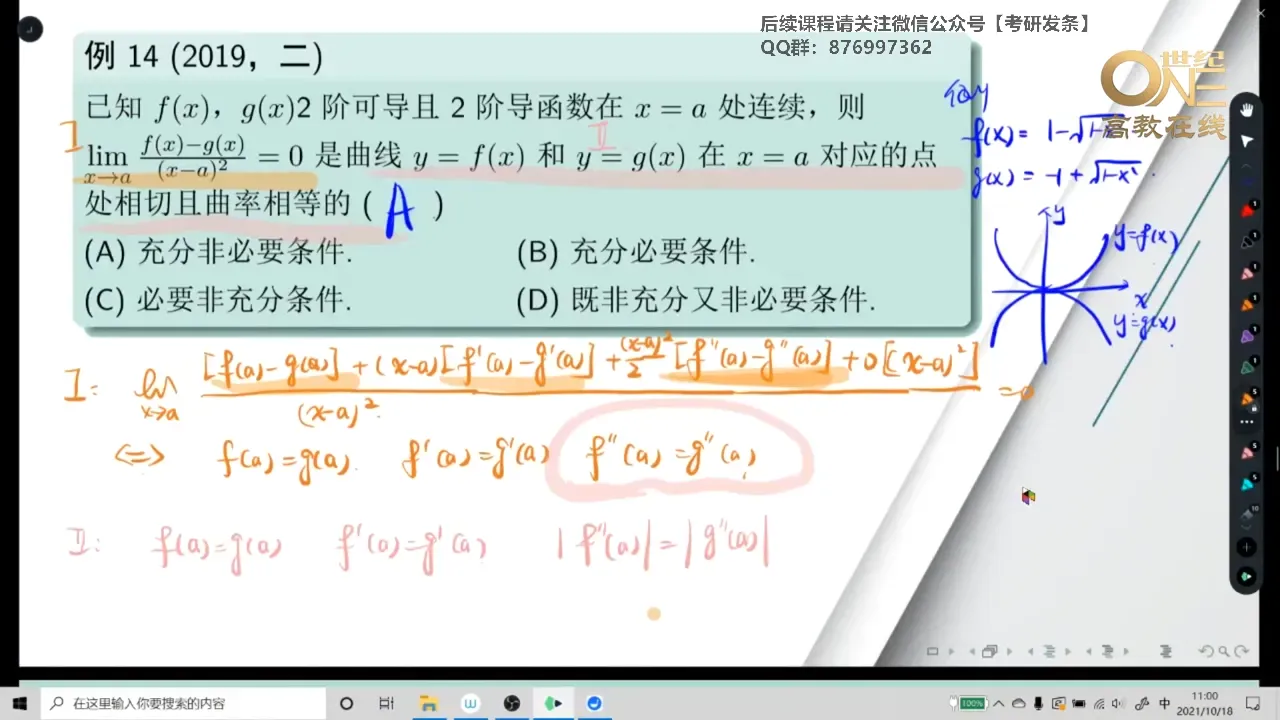 后续课程请关注微信公众号【考研发条】
QQ群：876997362
世纪
ONE
高教在线
例 14 (2019，二)
已知 f(x)，g(x)2 阶可导且 2 阶导函数在 x = a 处连续，则
I
lim_{x→a} \frac{f(x)−g(x)}{(x−a)^2} = 0 是曲线 y = f(x) 和 y = g(x) 在 x = a 对应的点
II
处相切且曲率相等的 ( A )
(A) 充分非必要条件.
(B) 充分必要条件.
(C) 必要非充分条件.
(D) 既非充分又非必要条件.
g(x) = -1 + √(1-x²).
y
y=f(x)
x
y=g(x)
I: lim_{x→a} \frac{[f(a)-g(a)] + (x-a)[f'(a)-g'(a)] + \frac{(x-a)^2}{2}[f''(a)-g''(a)] + o[(x-a)^2]}{(x-a)^2} = 0
<=> f(a)=g(a). f'(a)=g'(a) f''(a)=g''(a).
II: f(a)=g(a) f'(a)=g'(a) |f''(a)|=|g''(a)|
在这里输入你要搜索的内容
100%
中
11:00
2021/10/18